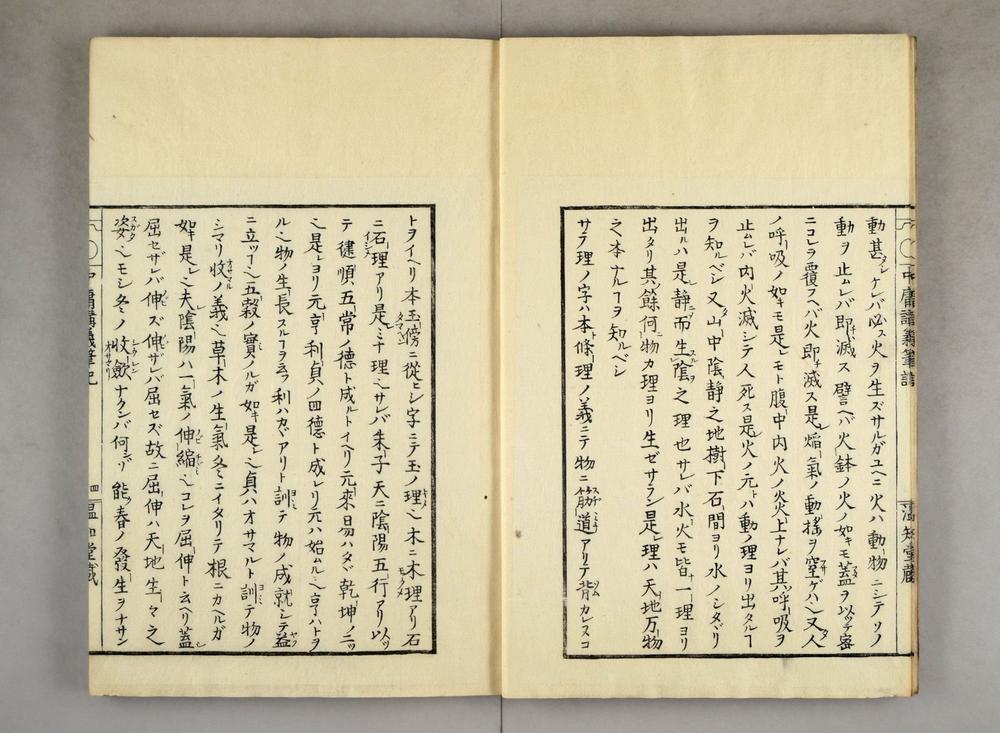 動甚ケレバ必ス火ヲ生ズサルガユヘニ火ハ動物ニシテソノ
動ヲ止ムレバ即滅ス譬ヘバ火鉢ノ火ノ如キモ蓋ヲ以テ密
ニコレヲ覆フヘバ火即滅ス是熖氣ノ動搖ヲ窒ゲハ〆又人
ノ呼吸ノ如キモ是レモト腹中内火ノ炎上ナレバ其呼吸ヲ
止ムレバ内火滅シテ人死ス是火ノ元トハ動ノ理ヨリ出タルヿ
ヲ知ルベシ又山中陰静之地樹下石間ヨリ水ノシタヾリ
出ルハ是静而生陰之理也サレバ水火モ皆一理ヨリ
出タリ其餘何物カ理ヨリ生ゼサラン是レ理ハ天地万物
之本ナルヿヲ知ルベシ
サテ理ノ字ハ本條理ノ義ニテ物ニ筋道アリテ背カレスコ
トヲイヘリ本玉傍ニ從ヒシ字ニテ玉ノ理〆木ニ木理アリ石
ニ石理アリ是ミナ理〆サレバ朱子天ニ陰陽五行アリ以
テ健順五常ノ德ト成ルトイヘリ元來昜ハタヾ乾坤ノ二ツ
〆是レヨリ元亨利貞ノ四德ト成レリ元ハ始ムル〆亨ハトヲ
ル〆物ノ生長スルヿヲ云フ利ハカヾアリト訓テ物ノ成就シテ益
ニ立ツヿ〆五穀ノ實ノルガ如キ是レ〆貞ハオサマルト訓テ物ノ
シマリ收ノ義〆草木ノ生氣冬ニイタリテ根ニカヘルガ
如キ是レ〆夫陰陽ハ一氣ノ伸縮〆コレヲ屈伸ト云ヘリ蓋
屈セザレバ伸ズ伸ザレバ屈セズ故ニ屈伸ハ天地生々之
姿〆モシ冬ノ收斂ナクンバ何ゾ能春ノ發生ヲナサン
中庸講義筆記
四
温知堂藏